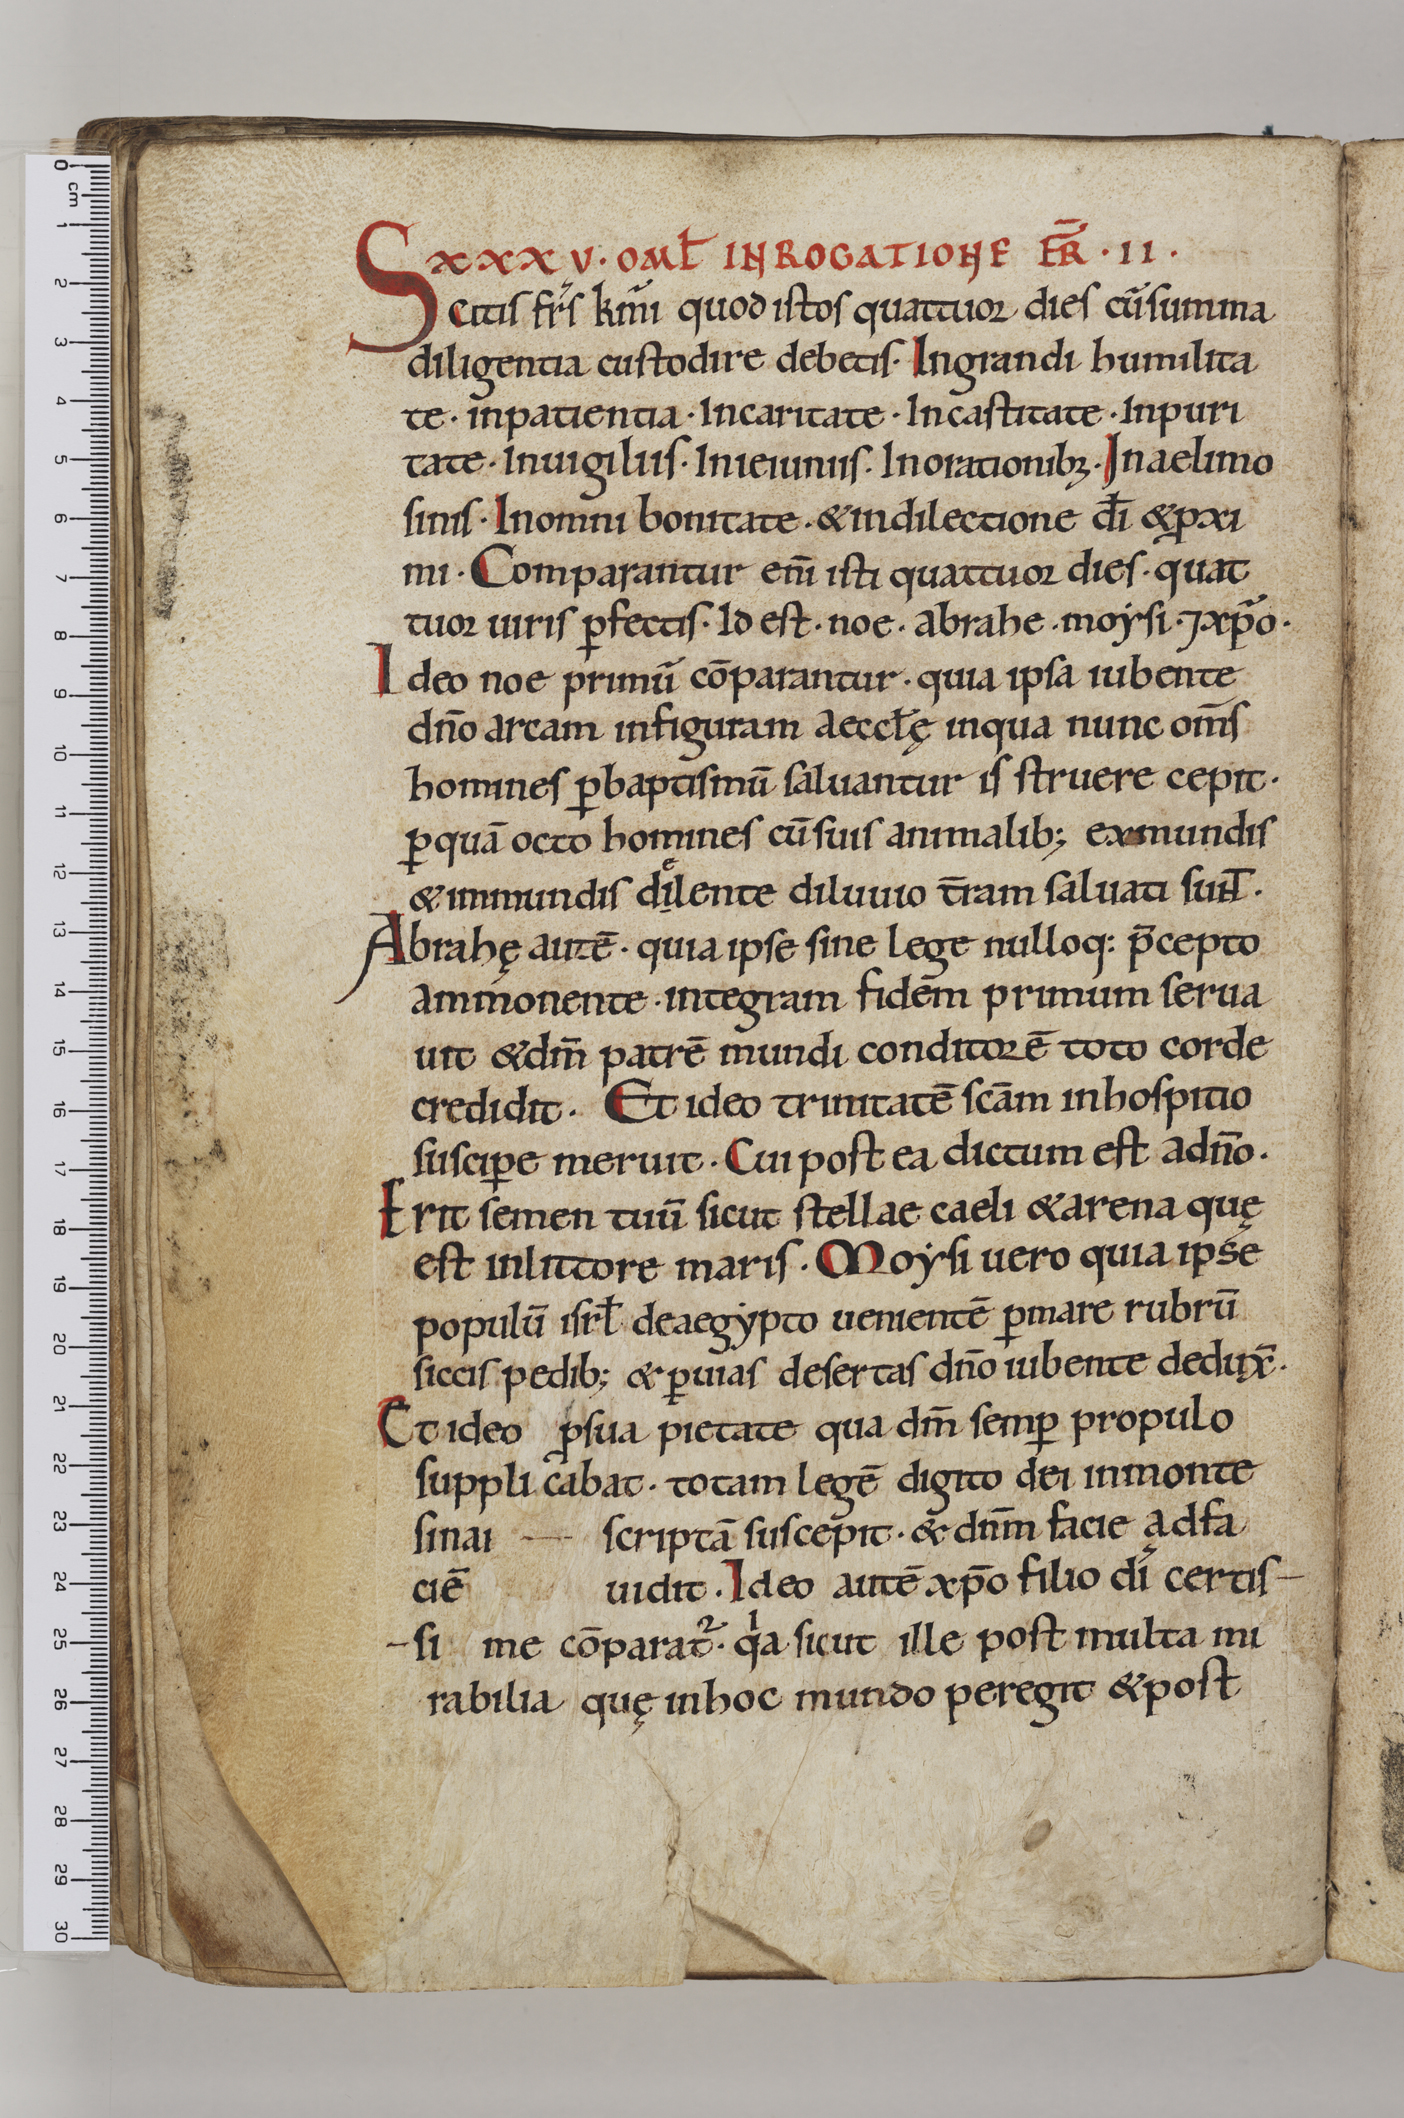 xxxv· oml̄ in rogatione fr̄ ·ii·
Scitis fr̄s km̄i quod istos quattuor dies cū summa
diligentia custodire debetis· In grandi humilita
te· in patientia· In caritate· In castitate· In puri
tate· In uigiliis· In ieiuniis· In orationibꝫ· In aelimo
sinis· In omni bonitate· & in dilectione dī & ꝓxi
mi· Comparantur eni̅ isti quattuor dies· quat
tuor uiris ꝑfectis· Id est· noe· abrahe· moẏsi· ⁊ xp̄o·
Ideo noe primū cōparantur· quia ipsa iubente
dn̄o arcam in figuram aeccłę in qua nunc om̄s
homines ꝑ baptismū saluantur is struere cepit·
ꝑ quā octo homines cū suis animalib; ex mundis
& immundis dilente diluuio t̄ram saluati sunt̄·
Abrahę autē· quia ipse sine lege nulloq: p̄cepto
ammonente· integram fidem primum serua
uit & dm̄ patrē mundi conditorē toto corde
credidit· Et ideo trinitatē scām in hospitio
susciꝑe meruit· Cui post ea dictum est a dn̄o·
Erit semen tuū sicut stellae caeli & arena quę
est in littore maris· Moẏsi uero quia ipse
populū isrł de aegẏpto uenientē ꝑ mare rubrū
siccis pedib; & ꝑ uias desertas dn̄o iubente dedux̄·
Et ideo ꝓ sua pietate qua dm̄ semꝑ pro pulo
suppli cabat· totam legē digito dei in monte
sinai — scriptā suscepit· & dnm̄ facie ad fa
ciē uidit· Ideo autē xp̄o filio dī certis—
—si me cōparat᷑· qͥa sicut ille post multa mi
rabilia quę in hoc mundo peregit & post
0 cm 1 2 3 4 5 6 7 8 9 10 11 12 13 14 15 16 17 18 19 20 21 22 23 24 25 26 27 28 29 30